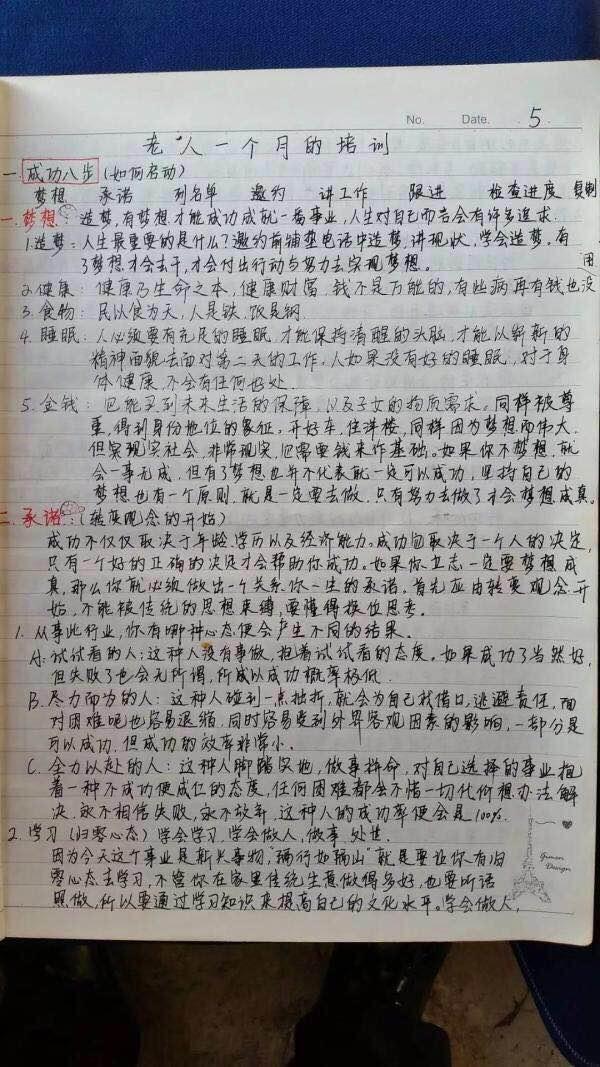 No. Date. 5.
老人一个月的培训
一 成功八步(如何启动)
梦想 承诺 列名单 邀约 讲工作 跟进 检查进度 复制
一.梦想: 造梦,有梦想才能成功成就一番事业,人生对自己而言会有许多追求.
1.造梦: 人生最重要的是什么?邀约前铺垫电话中造梦,讲现状,学会造梦,有
了梦想才会去干,才会付出行动与努力去实现梦想。
2.健康: 健康乃生命之本,健康财富,钱不是万能的,有些病再有钱也没用
3.食物: 民以食为天,人是铁,饭是钢.
4.睡眠: 人必须要有充足的睡眠,才能保持清醒的头脑,才能以崭新的
精神面貌去面对第二天的工作,人如果没有好的睡眠,对于身
体健康,不会有任何好处.
5.金钱: 它能买到未来生活的保障,以及子女的物质需求。同样被尊
重,得到身份地位的象征,开好车,住洋楼,同样因为梦想而伟大.
但实现实社会,非常现实,它需要钱来作基础。如果你不梦想,就
会一事无成,但有了梦想也并不代表就一定可以成功,坚持自己的
梦想也有一个原则,就是一定要去做,只有努力去做了才会梦想成真。
二.承诺:(转变观念的开始)
成功不仅仅取决于年龄学历以及经济能力。成功勿取决于一个人的决定,
只有一个好的正确的决定才会帮助你成功。如果你立志一定要梦想成
真,那么你就必须做出一个关系你一生的承诺。首先应由转变观念开
始,不能被传统的思想束缚,要懂得换位思考。
1.从事此行业,你有哪种心态便会产生不同的结果。
A.试试看的人:这种人没有事做,抱着试试看的态度。如果成功了当然好,
但失败了也会无所谓,所成以成功概率极低.
B.尽力而为的人:这种人碰到一点挫折,就会为自己找借口,逃避责任,面
对困难呢也容易退缩,同时容易受到外界客观因素的影响,一部分是
可以成功,但成功的效率非常小.
C.全力以赴的人:这种人脚踏实地,做事拼命,对自己选择的事业抱
着一种不成功便成仁的态度,任何困难都会不惜一切代价想办法解
决,永不相信失败,永不放弃,这种人的成功率便会是100%.
2.学习(归零心态)学会学习,学会做人,做事.处世.
因为今天这个事业是新兴事物,"隔行如隔山"就是要让你有归
零心态去学习,不管你在家里传统生意做得多好,也要听话
照做,所以要通过学习知识来提高自己的文化水平。学会做人,
Design